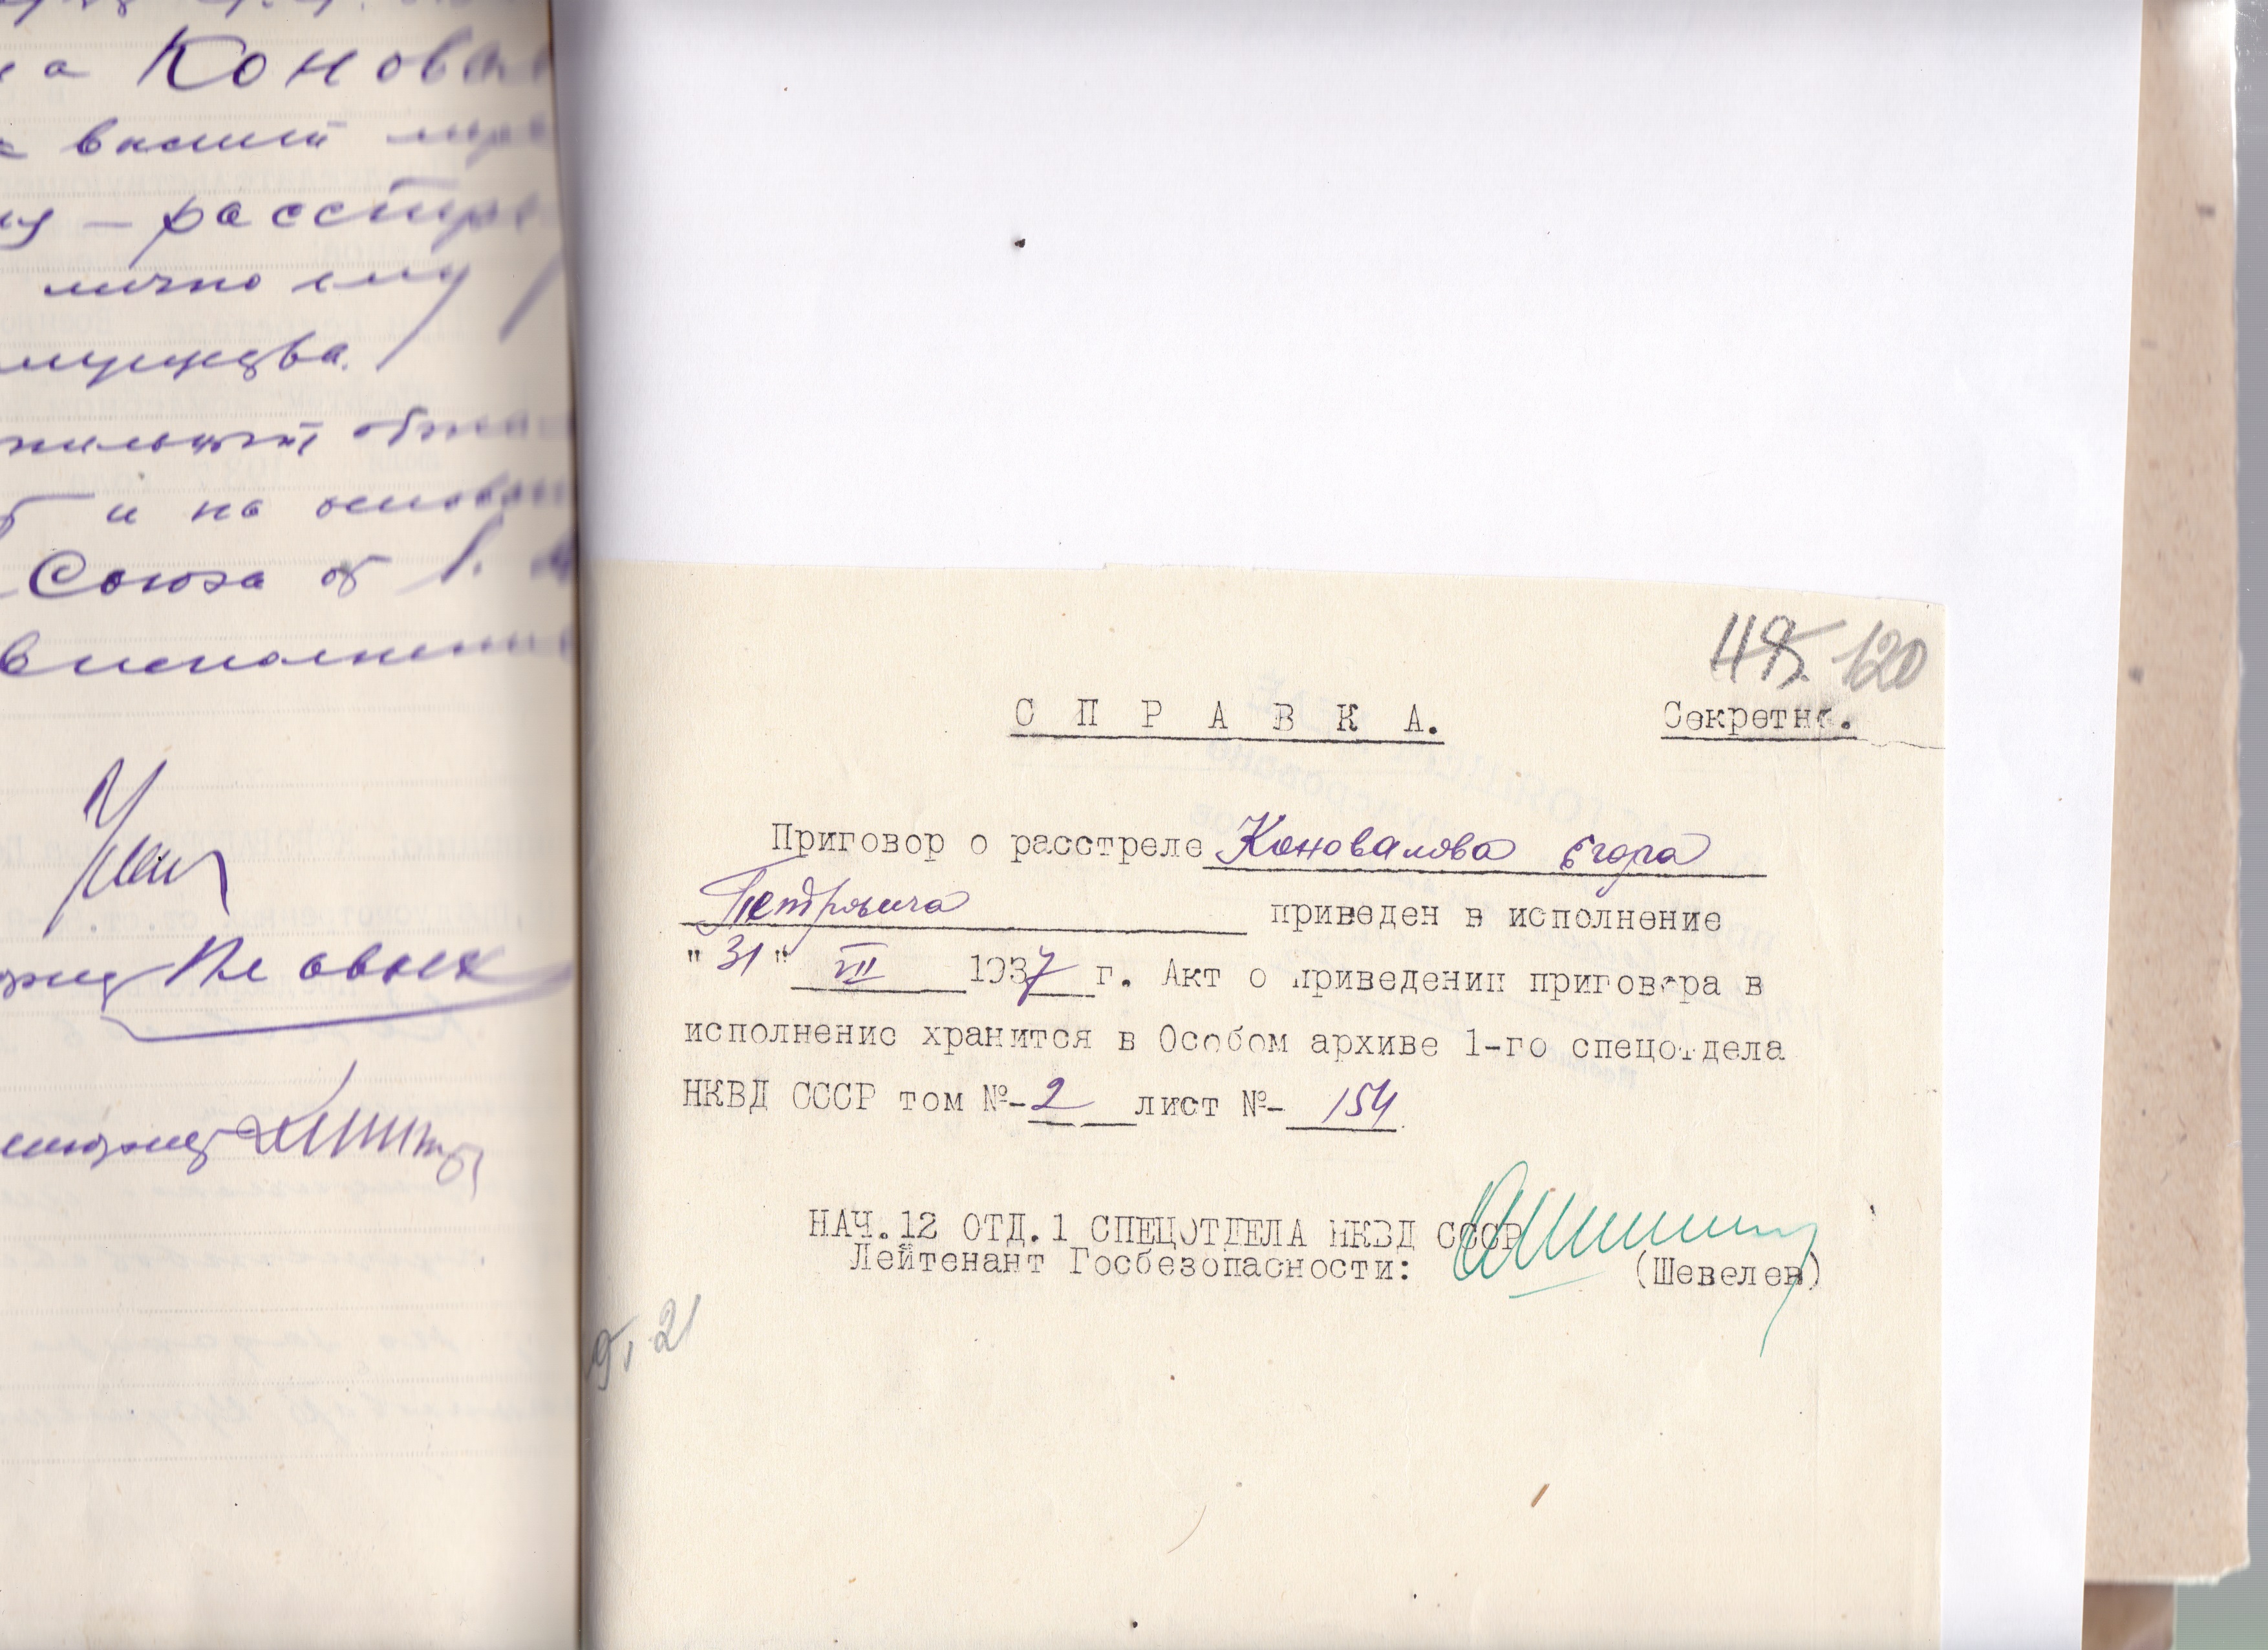 на Коновал
к высшей мере
ия – расстрел
лично ему
имущества.
и на основан
Союза от 1.
в исполнение
48. 120
С П Р А В К А.
Секретно.
Приговор о расстреле Коновалова Егора
Петровича приведен в исполнение
"31" VII 1937 г. Акт о приведении приговора в
исполнение хранится в Особом архиве 1-го спецотдела
НКВД СССР том №-2 лист №- 154.
НАЧ.12 ОТД.1 СПЕЦОТДЕЛА НКВД СССР
Лейтенант Госбезопасности:
(Шевелев)